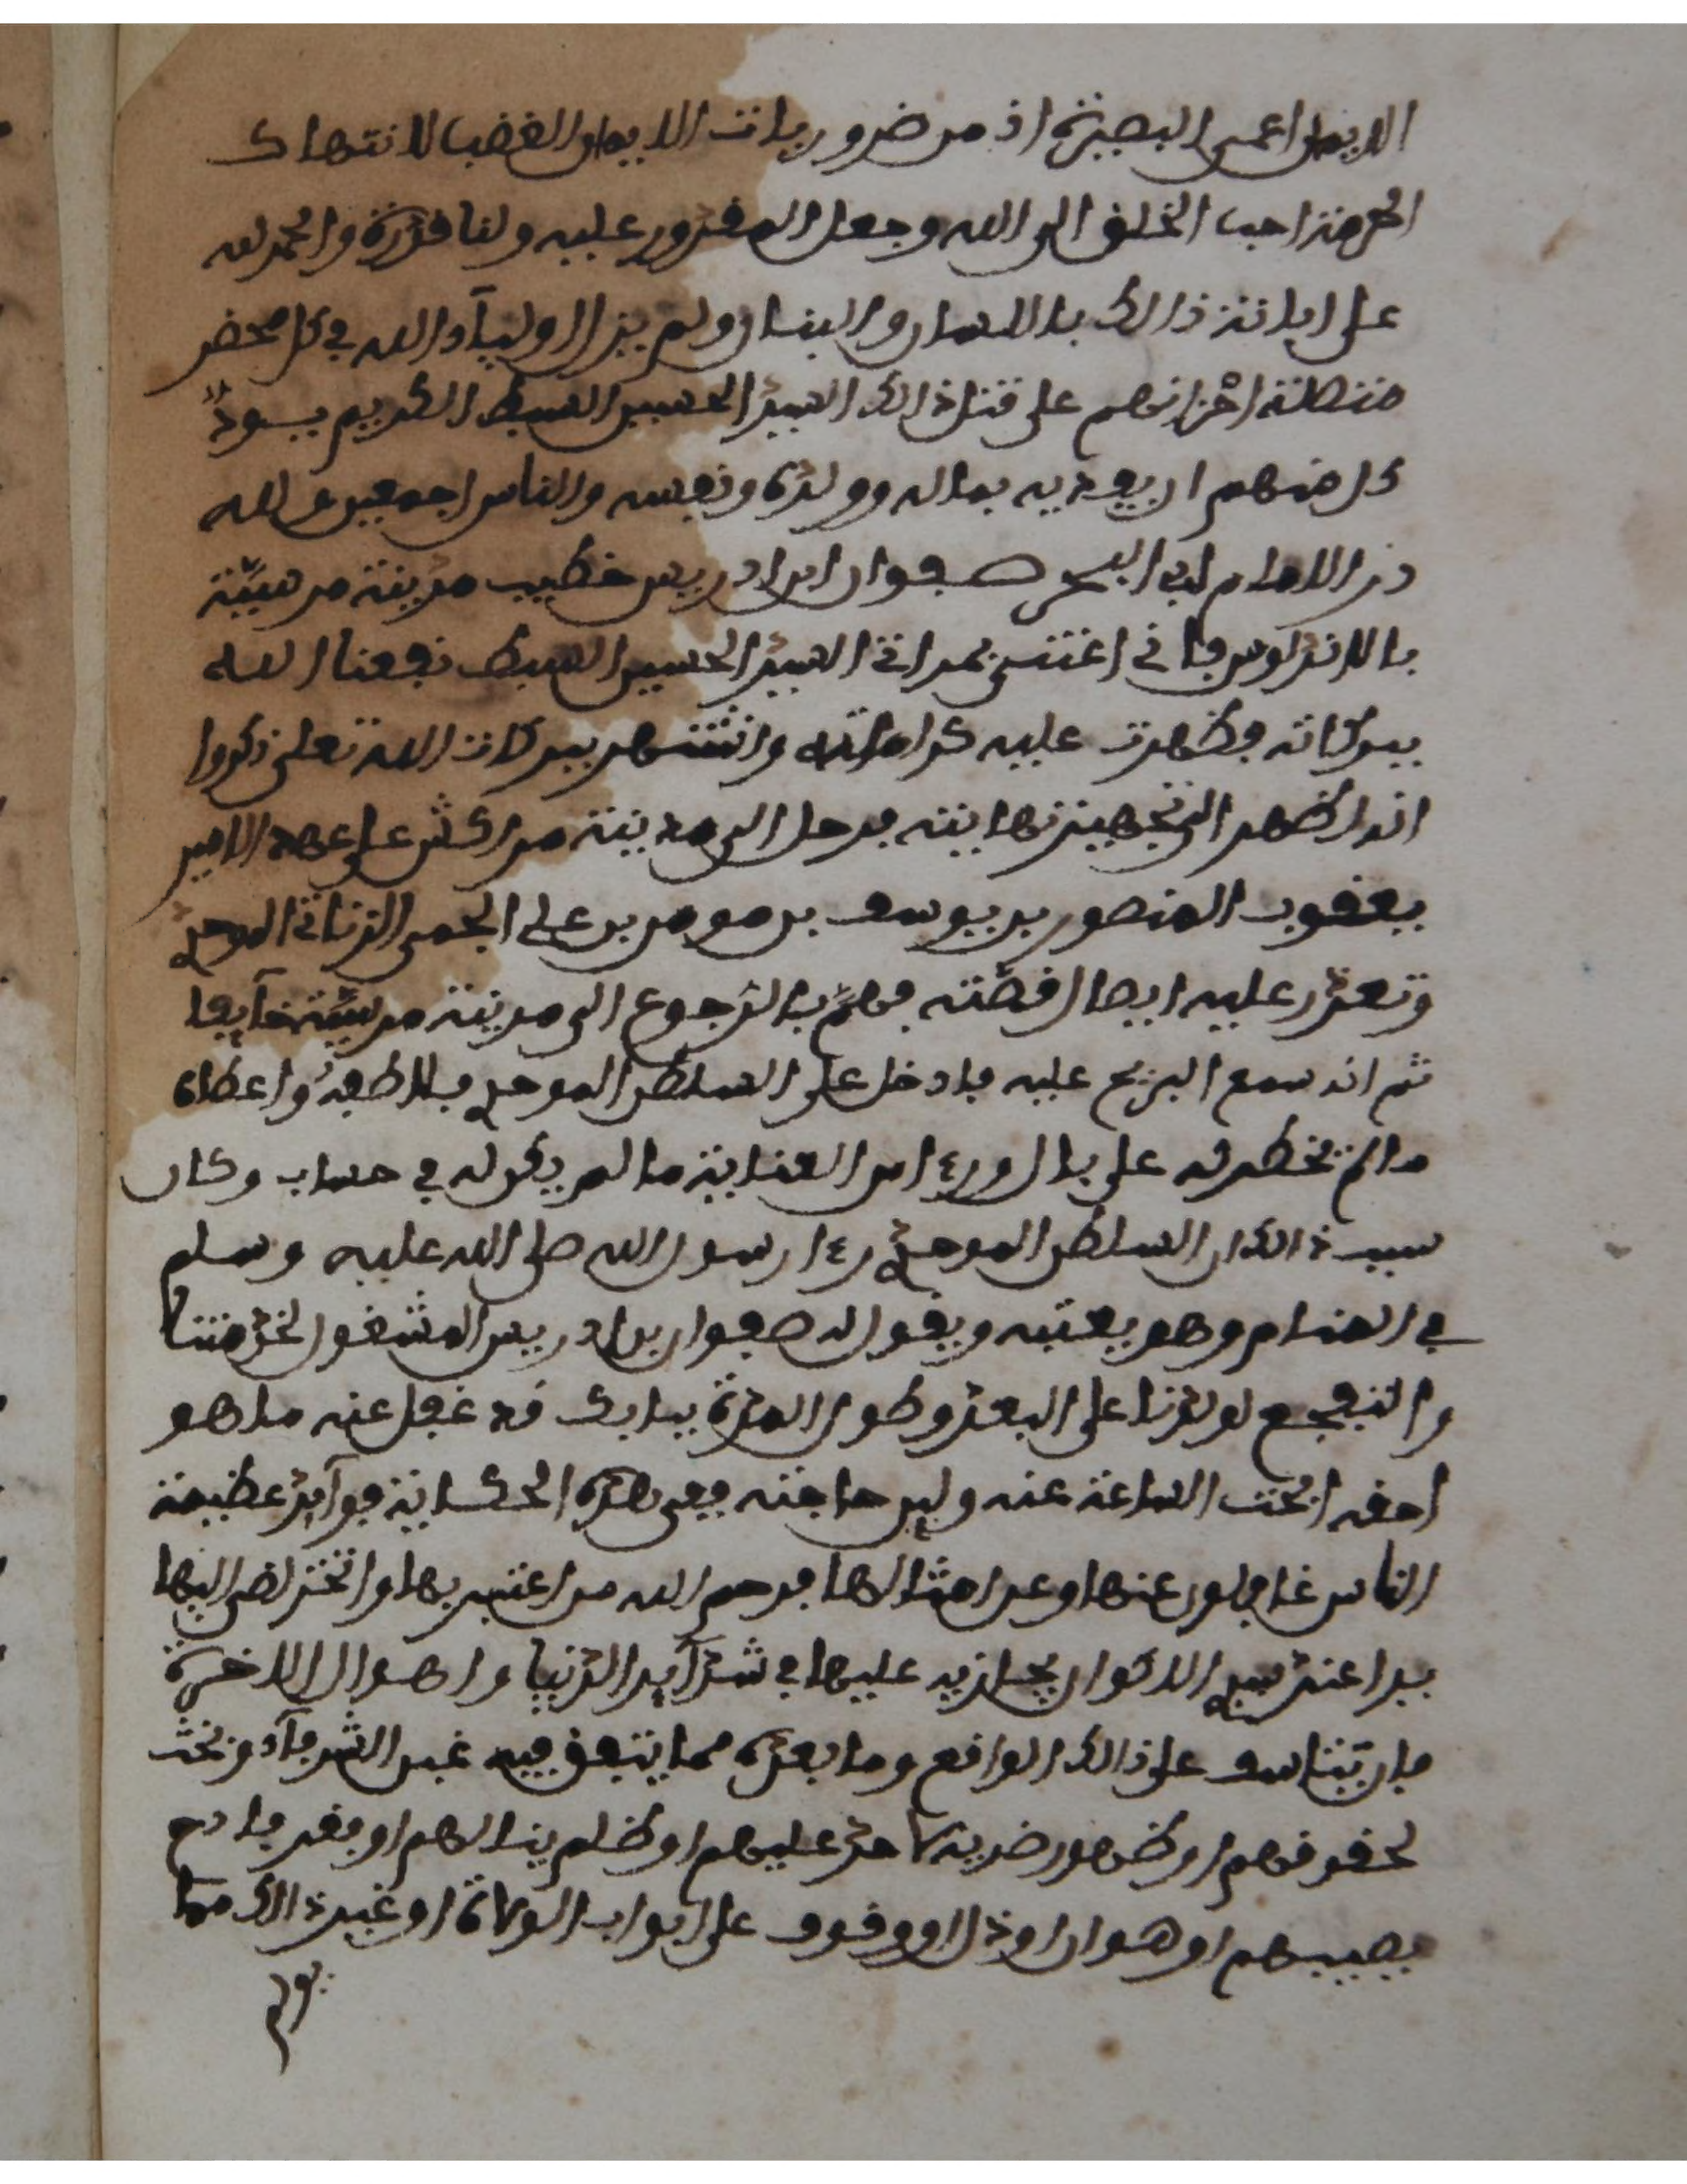 الايمان اعمى البصيرة اذ من ضروريات الايمان الغضب لانتهاك
الحرمة احب الخلق الى الله وجعل المقدور عليه ولنا قدرة والحمد لله
على ابانة ذالك باللسان والبنان ولم يزل اولياء الله في كل محضر
احزانهم على قتل ذالك السيد الحسين السبط الكريم يود
كل منهم ان يفديه بماله وولده ونفسه والناس اجمعين ولله
در الامام ابي البحر صفوان ابن ادريس خطيب مدينة مرسية
بالاندلوس فانى اعتنى بمراثى السيد الحسين السبط نفعنا الله
ببركاته فظهرت عليه كراماته وانتشهر ببركات الله تعلى ذكروا
انه اضطهر الى تجهيز بها ابنته فرحل الى مدينة مراكش على عهد الامير
يعقوب المنصور بن يوسف بن مومن بن علي الجمى الزناتى الموحدي
وتعذر عليه ايصال قصته فهم بالرجوع الى مدينة مرسية خايبا
ثم انه سمع البريح عليه فادخل على السلطن الموحدي فلاطفه واعطاه
ما لم تخطر له على بال ورءا من العناية ما لم يكن له في حساب وكان
سبب ذالك ان السلطن الموحدي رءا رسول الله صلى الله عليه وسلم
في المنام وهو يعتبه ويقول له صفوان بن ادريس المشغول لخدمتنا
والتفجع لولدنا على البعد وطول المدة ببابك قد غفل عنه ما هو
احقه ابحث الساعة عنه ولبى حاجته ففى هذه الحكاية فوايد عظيمة
الناس غافلون عنها وعن امثالها فرحم الله من اعتبر بها واتخذ لنفس اليها
بيدا عند سيد الاكوان يجازيه عليها في شدايد الدنيا واهوال الاخرة
فان يتناسف على ذالك الواقع وما بعده مما يتفق فيه غير الشرفاء من نحث
لحقوقهم او ظهور ضريبة احد عليهم او ظلم ينالهم او فقر فادح
يصيبهم او هوان او ذل او وقوف على ابواب الولاة او غير ذالك مما